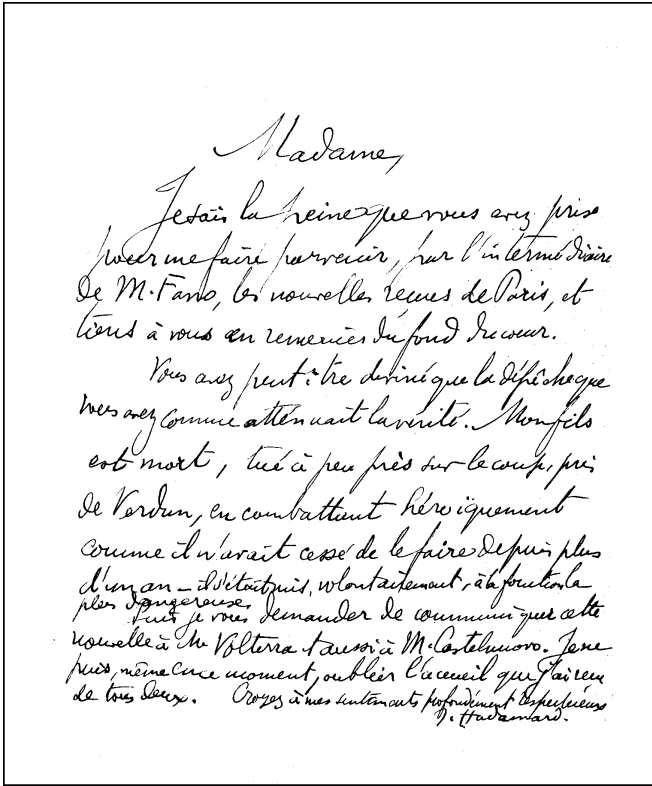 Madame,
Je sais la peine que vous avez prise
pour me faire parvenir, par l'intermédiaire
de M. Fano, les nouvelles reçues de Paris, et
tiens à vous en remercier du fond du coeur.
Vous avez peut être deviné que la dépêche que
vous avez connue atténuait la vérité. Mon fils
est mort, tué à peu près sur le coup, près
de Verdun, en combattant héroïquement
comme il n'avait cessé de le faire depuis plus
d'un an – il s'était mis, volontairement, à la fonction la
plus dangereuse.
Puis je vous demander de communiquer cette
nouvelle à M. Volterra & aussi à M. Castelnuovo. Je ne
puis, même en ce moment, oublier l'accueil que j'ai reçu
de tous deux. Croyez à mes sentiments profondément respectueux
J. Hadamard.